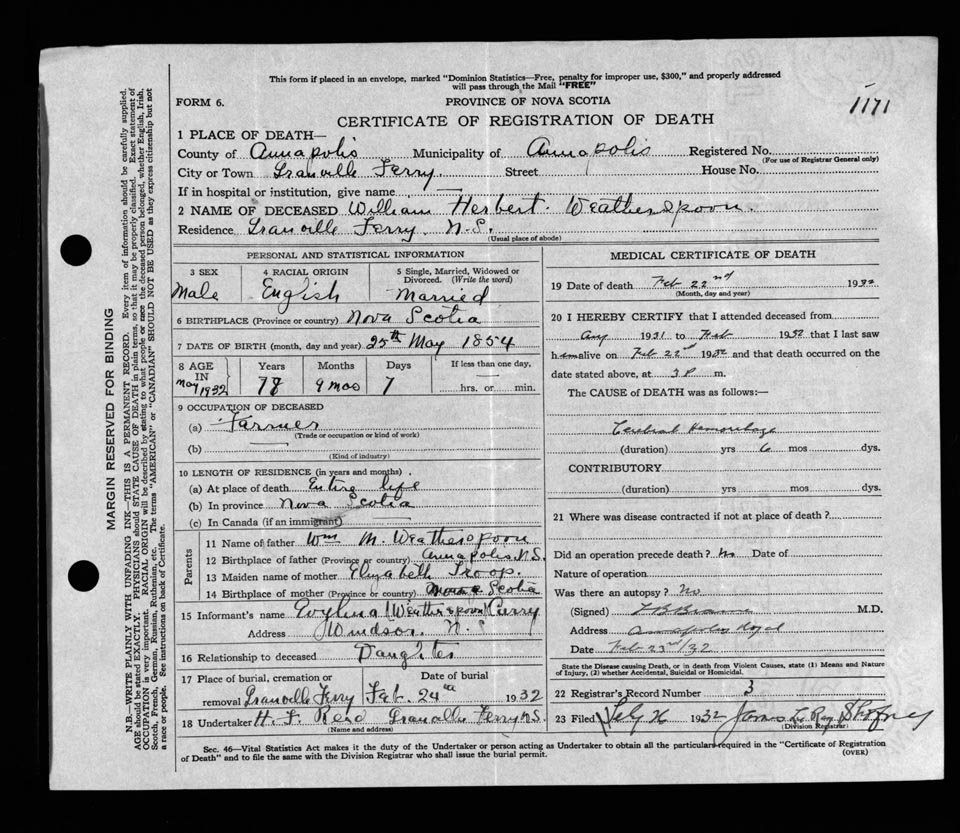 This form if placed in an envelope, marked "Dominion Statistics—Free, penalty for improper use, $300," and properly addressed
will pass through the Mail "FREE"
FORM 6.
PROVINCE OF NOVA SCOTIA
1171
CERTIFICATE OF REGISTRATION OF DEATH
1 PLACE OF DEATH—
County of Annapolis Municipality of Annapolis Registered No.
(For use of Registrar General only)
City or Town Granville Ferry Street House No.
If in hospital or institution, give name —
2 NAME OF DECEASED William Herbert Weatherspoon.
Residence Granville Ferry N.S.
(Usual place of abode)
PERSONAL AND STATISTICAL INFORMATION
3 SEX 4 RACIAL ORIGIN 5 Single, Married, Widowed or
Divorced. (Write the word)
Male English Married
6 BIRTHPLACE (Province or country) Nova Scotia
7 DATE OF BIRTH (month, day and year) 25th May 1854
8 AGE Years Months Days If less than one day,
IN
May 1932 78 9 mos 7 hrs. or min.
9 OCCUPATION OF DECEASED
(a) Farmer
(Trade or occupation or kind of work)
(b) —
(Kind of industry)
10 LENGTH OF RESIDENCE (in years and months)
(a) At place of death Entire life
(b) In province Nova Scotia
(c) In Canada (if an immigrant) —
Parents
11 Name of father Wm M. Weatherspoon
12 Birthplace of father (Province or country) Annapolis N.S.
13 Maiden name of mother Elizabeth Troop.
14 Birthplace of mother (Province or country) Nova Scotia
15 Informant's name Evylina (Weatherspoon) Curry
Address Windsor. N.S
16 Relationship to deceased Daughter
17 Place of burial, cremation or Date of burial
removal Granville Ferry Feb. 24th 1932
18 Undertaker H. F. Reid Granville Ferry N.S.
(Name and address)
MEDICAL CERTIFICATE OF DEATH
19 Date of death Feb 22nd 1932
(Month, day and year)
20 I HEREBY CERTIFY that I attended deceased from
Aug 1931 to Feb 1932 that I last saw
him alive on Feb 22nd 1932 and that death occurred on the
date stated above, at 3 P m.
The CAUSE of DEATH was as follows:
Cerebral Hemorrhage
(duration) yrs 6 mos dys.
CONTRIBUTORY
(duration) yrs mos dys.
21 Where was disease contracted if not at place of death?
Did an operation precede death? No Date of
Nature of operation
Was there an autopsy? No
(Signed) M.D.
Address Annapolis Royal
Date Feb 23rd/32
State the Disease causing Death, or in death from Violent Causes, state (1) Means and Nature
of Injury, (2) whether Accidental, Suicidal or Homicidal.
22 Registrar's Record Number 3
23 Filed Feby 26 1932 James Le Ray
(Division Registrar)
Sec. 46—Vital Statistics Act makes it the duty of the Undertaker or person acting as Undertaker to obtain all the particulars required in the "Certificate of Registration
of Death" and to file the same with the Division Registrar who shall issue the burial permit.
(OVER)
MARGIN RESERVED FOR BINDING
N.B.—WRITE PLAINLY WITH UNFADING INK—THIS IS A PERMANENT RECORD. Every item of information should be carefully supplied.
AGE should be stated EXACTLY. PHYSICIANS should STATE CAUSE OF DEATH in plain terms, so that it may be properly classified. Exact statement of
OCCUPATION is very important. RACIAL ORIGIN will be described by stating to what people or race the deceased person belonged, whether English, Irish,
Scotch, French, German, Russian, Ruthenian, etc. The terms "AMERICAN" or "CANADIAN" SHOULD NOT BE USED as they express citizenship but not
a race or people. See instructions on back of Certificate.